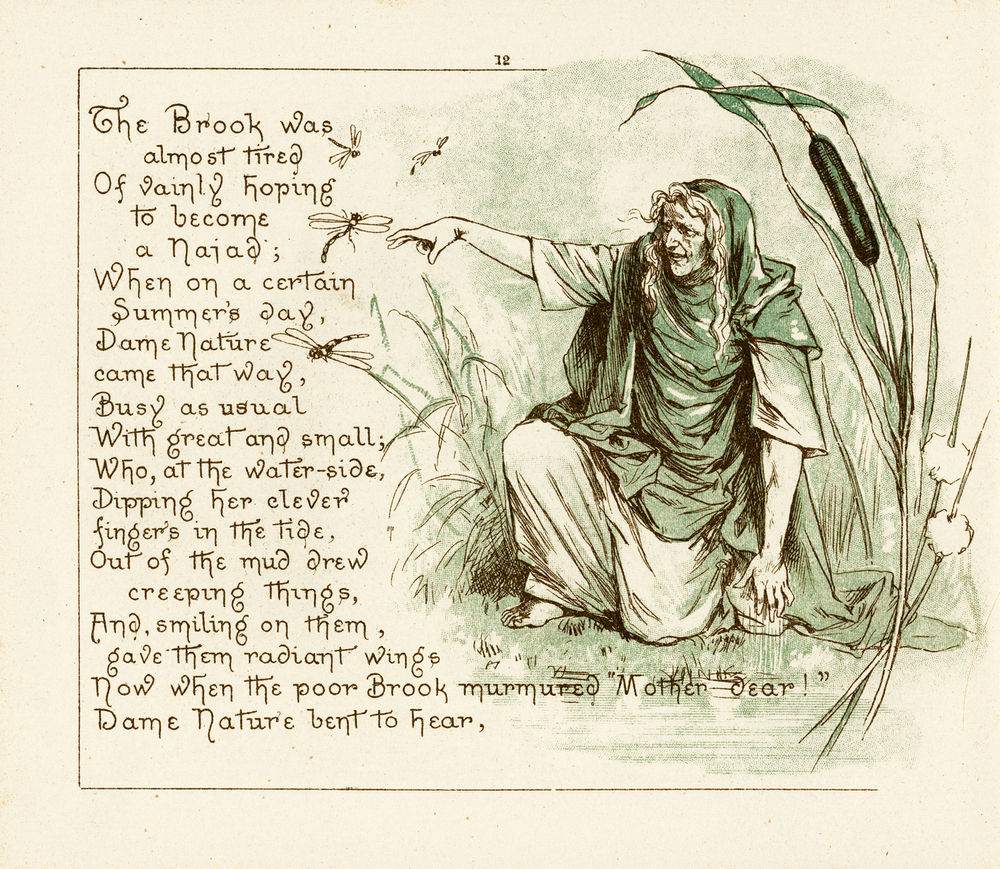 12
The Brook was
almost tired
Of vainly hoping
to become
a Naiad;
When on a certain
Summer's day,
Dame Nature
came that way,
Busy as usual
With great and small;
Who, at the water-side,
Dipping her clever
fingers in the tide,
Out of the mud drew
creeping things,
And, smiling on them,
gave them radiant wings
Now when the poor Brook murmured "Mother dear!"
Dame Nature bent to hear,